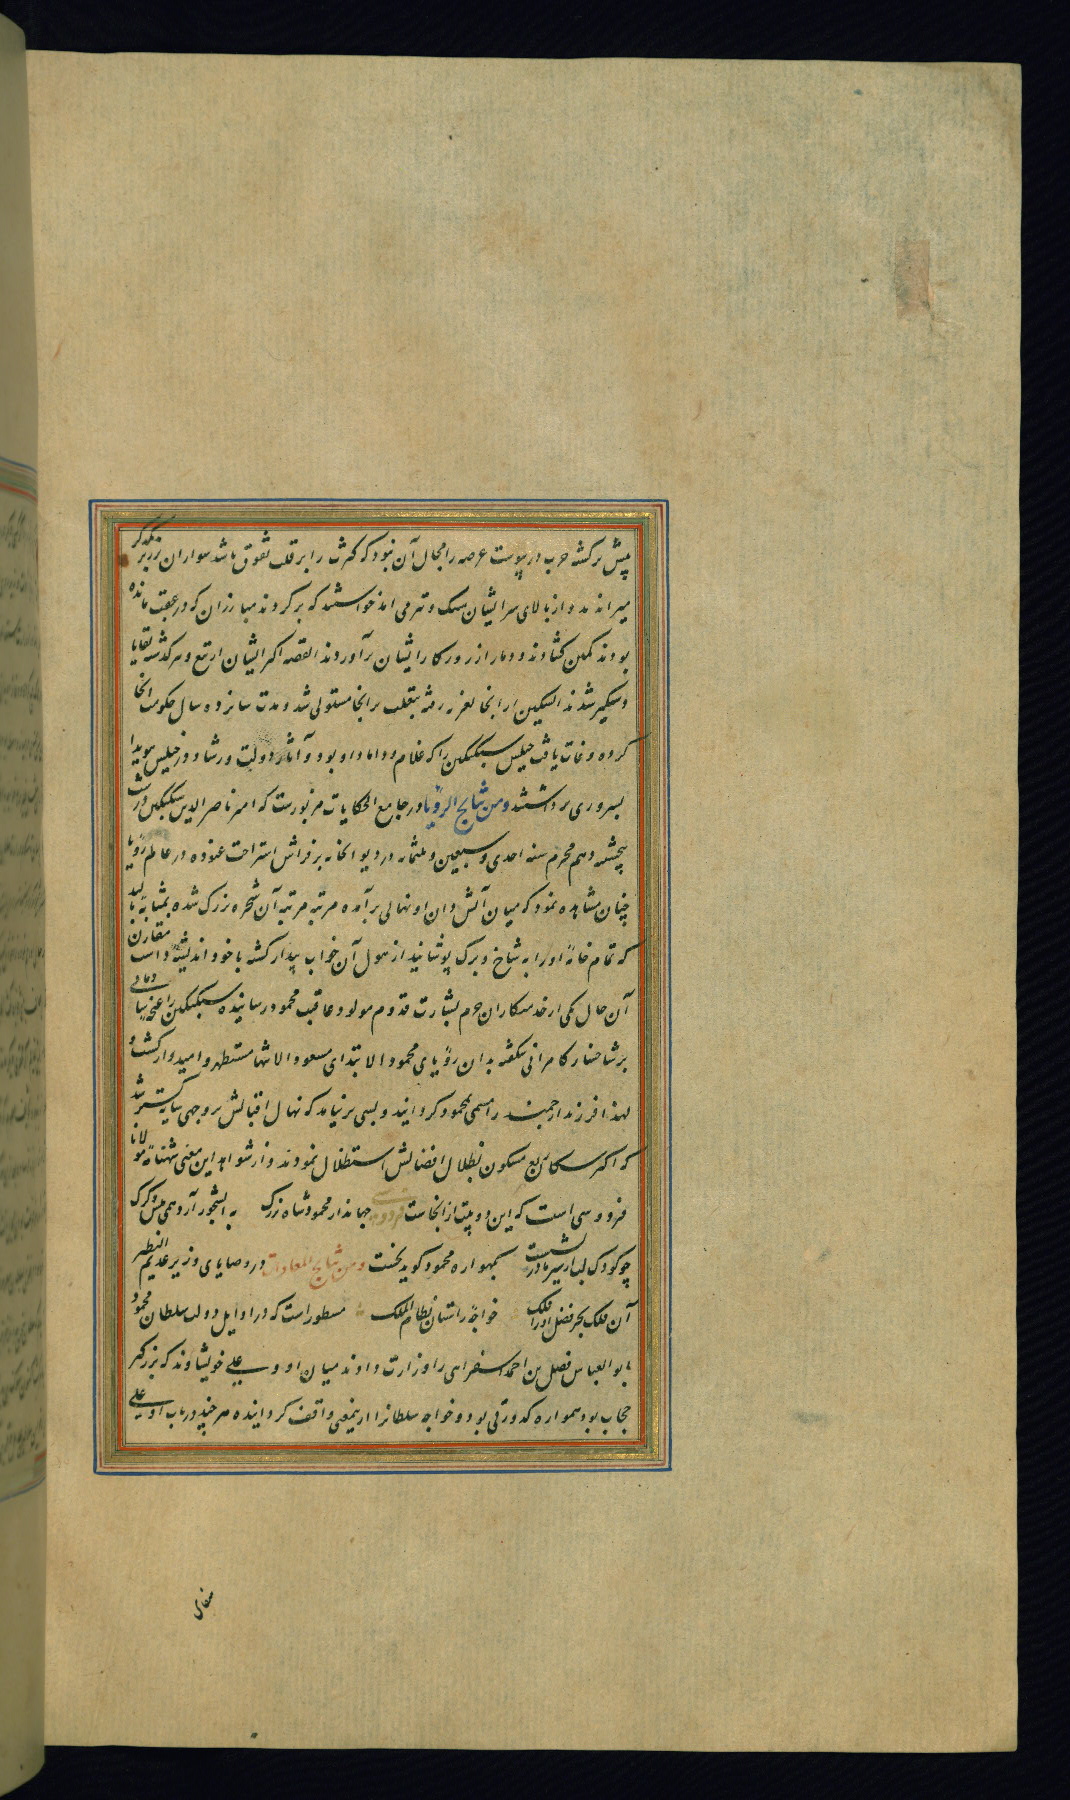 پیش برکشته حرب در پیوست عرصه را مجال آن نبود که کثرت را بر قلت تفوق باشد سواران بر زبر یکدیگر
میراندند و از بالای سر ایشان سنک و تیر می آمد خواستند که برکردند مبارزان که در عقب مانده
بودند کمین کشادند و دمار از روزکار ایشان برآوردند القصه اکثر ایشان از تیغ و سرکذشته بقایا
دستکیر شدند الپتکین از انجا بغزنه رفته بتغلب بر انجا مستولی شد و مدت سانزده سال حکومت انجا
کرده وفات یافت خیلش سبکتکین را که غلام و داماد او بود و آثار دولت و رشاد و ز خیلش هویدا
بسروری برداشتند ومن نتایج الرویا در جامع الحکایات مزبورست که امیر ناصر الدین سبکتکین در شب
پنجشنبه دهم محرم سنه احدی و سبعین و ثلثمائه در دیوانخانه بر فراش استراحت غنوده در عالم رویا
چنان مشاهده نمود که میان آتش دان او نهالی برآمده مرتبه مرتبه آن شجره بزرک شده بمثابه بالید
که تمام خانه او را به شاخ و برک پوشانید از هول آن خواب بیدار کشته با خود اندیشه داشت مقارن
آن حال یکی از خدمتکاران حرم بشارت قدوم مولود عاقبت محمود رسانیده سبکتکین را غنچه
بر شاخسار کامرانی شکفته بدان رویای محمود الابتدای مسعود الانتها مستظهر و امیدوار کشت و
لهذا فرزند ارجمند را مسمی بمحمود کردانید و بسی برنیامد که نهال اقبالش بروجهی سایه کستر شد
که اکثر سکان ربع مسکون بظلال افضالش استظلال نمودند و از شواهد این معنی شهنامه مولانا
فردوسی است که این دو بیت از انجاست جهاندار محمود شاه بزرک به آبشخور آرد همی میش و کرک
چو کودک لب از شیر مادر بشست کهواره محمود کوید نخست ومن نتایج المعادات در وصایای وزیر عدیم النظیر
آن فلک بحر فضل او را فلک خواجه راستان نظام الملک مسطور است که در اوایل دولت سلطان محمود
بابو العباس فضل بن احمد اسفراینی را وزارت دادند میان او و علی خویشاوند که بزرکتر
حجاب بود همواره کدورتی بود و خواجه سلطانرا از ینمعنی واقف کردانیده هر چند در باب او علی